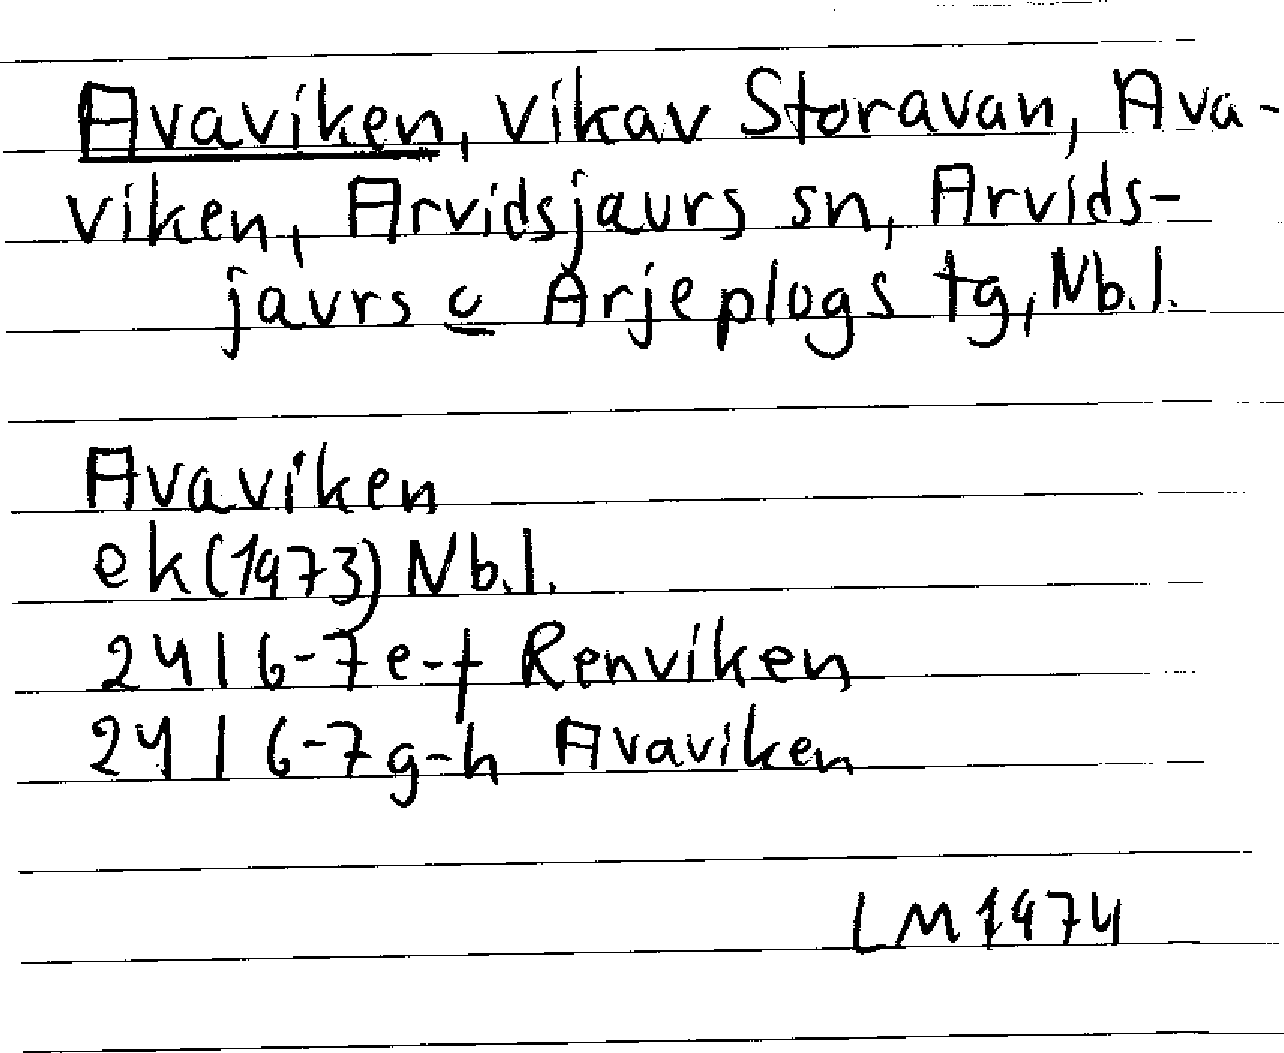 Avaviken, vik av Storavan, Ava-
viken, Arvidsjaurs sn, Arvids-
jaurs o Arjeplogs tg, Nb.l.
Avaviken
ek (1973) Nb.l.
24I 6-7e-f Renviken
24I 6-7g-h Avaviken
LM 1974